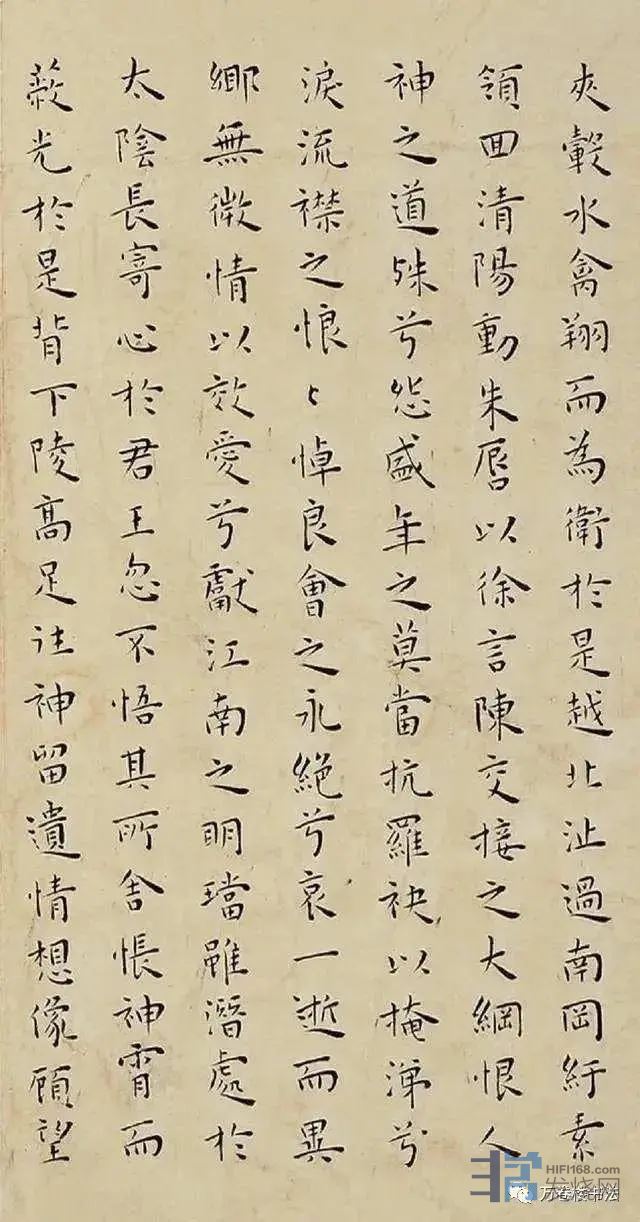 夾轂水禽翔而為衛於是越北沚過南岡紆素
領迴清陽動朱脣以徐言陳交接之大綱恨人
神之道殊兮怨盛年之莫當抗羅袂以掩涕兮
淚流襟之悢〻悼良會之永絕兮哀一逝而異
鄉無微情以效愛兮獻江南之明璫雖潛處於
太陰長寄心於君王忽不悟其所舍悵神霄而
蔽光於是背下陵高足往神留遺情想像顧望
HIFI168.com
发烧网
万卷楼书法